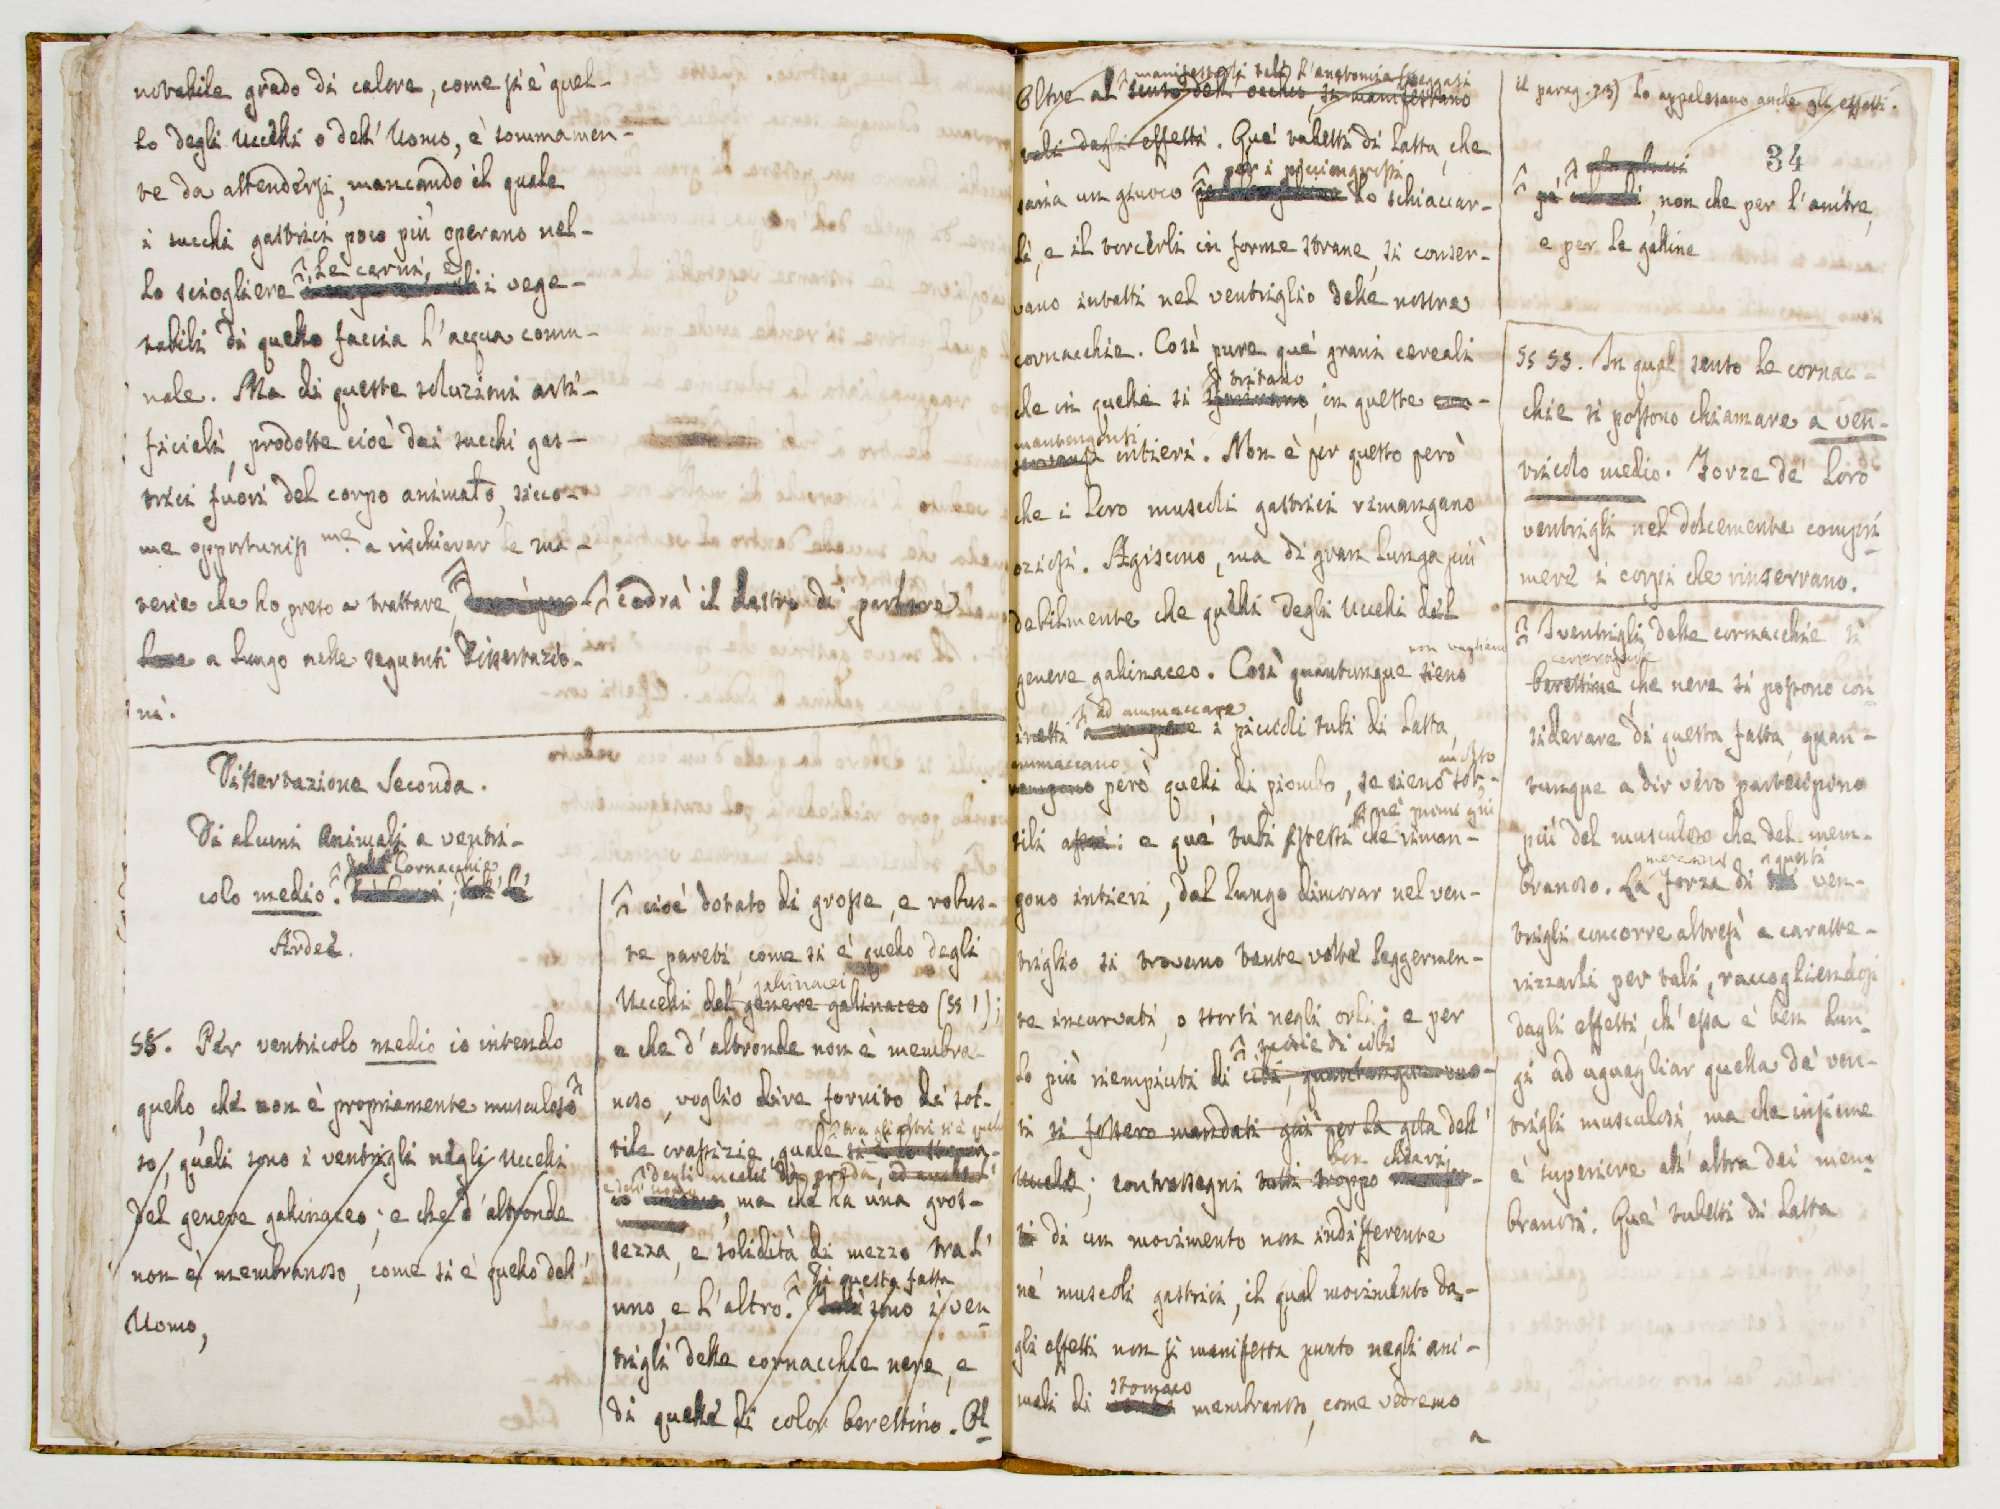 notabile grado di calore, come si è quel-
lo degli Uccelli o dell' Uomo, è sommamen-
te da attendersi, mancando il quale
i succhi gastrici poco più operano nel-
lo sciogliere le carni, e i vege-
tabili di quello faccia l'acqua comu-
nale. Ma di queste soluzioni arti-
ficiali, prodotte cioè dai succhi gas-
trici fuori del corpo animato, sicco-
me opportuniss.me a rischiarar le ma-
terie che ho preso a trattare, cadrà il destro di parlare
a lungo nelle seguenti Dissertazio-
ni.
Dissertazione Seconda.
Di alcuni Animali a ventri-
colo medio. Cornacchie,
Ardee.
Per ventricolo medio io intendo
quello, che non è propriamente musculoso
so, quali sono i ventrigli negli Uccelli
del genere gallinaceo; e che d'altronde
non è membranoso, come si è quello dell'
Uomo,
cioè dotato di grosse, e robus-
te pareti, come si è quello degli
gallinacei
Uccelli del genere gallinaceo (§§ 1);
e che d'altronde non è membra-
noso, voglio dire fornito di sot-
tile crassizie, quale
degli uccelli di preda,
ma che ha una gros-
sezza, e solidità di mezzo tra l'
uno, e l'altro. Di questa fatta
sono i ven
trigli delle cornacchie nere, e
di quelle di color berettino. Ol
manifestarli tali l'anatomia (veggasi
Oltre al senso dell' occhio, si manifestano
tali dagli effetti. Que' tubetti di latta, che
per i piccion grossi
saria un giuoco lo schiacciar-
li, e il torcerli in forme strane, si conser-
vano intatti nel ventriglio delle nostre
cornacchie. Così pure que' grani cereali
tritano
che in quelle si, in queste
mantengonsi
intieri. Non è per questo però
che i loro muscoli gastrici rimangano
oziosi. Agiscono, ma di gran lunga più
debilmente che quelli degli Uccelli del
genere gallinaceo. Così quantunque sieno
non vagliano
inetti ad ammaccare i piccoli tubi di latta,
ammaccano
vengono però quelli di piombo, se sieno sot-
tili assai: e que' tubi stessi che riman-
gono intieri, dal lungo dimorar nel ven-
triglio si trovano tante volte leggermen-
te incurvati, o storti negli orli; e per
lo più riempiuti di cibi
ti si fossero mandati giù per la gola dell'
Uccello; contrassegni tutti troppo ben chiari
di un movimento non indifferente
ne' muscoli gastrici, il qual movimento da-
gli effetti non si manifesta punto negli ani-
mali di stomaco membranoso, come vedremo
a
il parag. 73) lo appalesano anche gli effetti.
34
non che per l'anitre,
e per le galline
In qual senso le cornac-
chie si possono chiamare a ven-
tricolo medio. Forze de' loro
ventrigli nel dolcemente compri
mere i corpi che rinserrano.
I ventrigli delle cornacchie sì
berettine che nere si possono con
siderare di questa fatta, quan-
tunque a dir vero partecipino
più del musculoso che del mem-
branoso. La forza di questi ven-
trigli concorre altresì a caratte-
rizzarli per tali, raccogliendosi
dagli effetti, ch' essa è ben lun
gi ad uguagliar quella de' ven-
trigli musculosi, ma che insieme
è superiore all' altra dei mem
branosi. Que' tubetti di latta